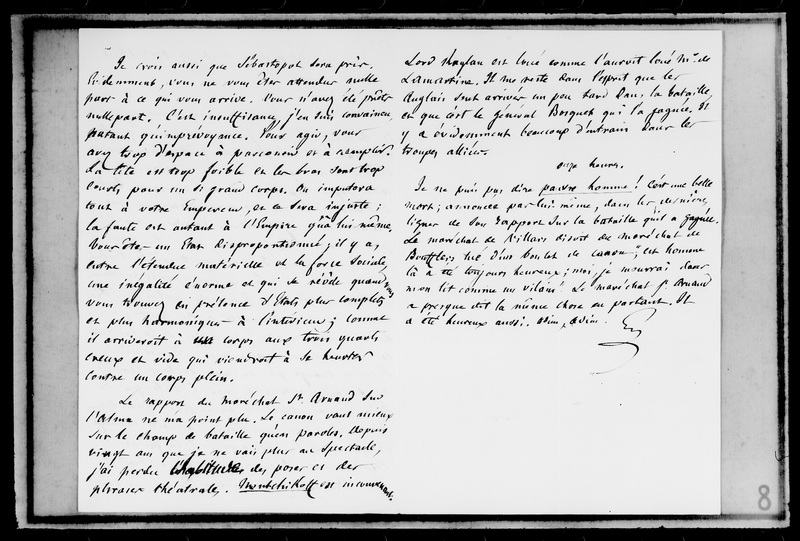 Je crois aussi que Sébastopol sera pris.
Evidemment, vous ne vous êtes attendus nulle
part à ce qui vous arrive. Vous n'avez été prêts
nullepart. C'est insuffisance, j'en suis convaincu,
autant qu'imprévoyance. Pour agir, vous
avez trop d'espace à parcourir et à remplir.
La tête est trop foible et les bras sont trop
courts pour un si grand corps. On imputera
tout à votre Empereur, et ce sera injuste ;
la faute est autant à l'Empire qu'à lui même.
Vous êtes un Etat disproportionné ; il y a,
entre l'étendue matérielle et la force sociale,
une inégalité énorme et qui se révèle quand vous
vous trouvez en présence d'Etats plus complets
et plus harmoniques à l'intérieur ; comme
il arriveroit à un corps aux trois quarts
creux et vide qui viendroit à se heurter
contre un corps plein.
Le rapport du Maréchal St Arnaud sur
l'Alma ne m'a point plu. Le canon vaut mieux
sur le champ de bataille qu'en paroles. Depuis
vingt ans que je ne vais plus au spectacle,
j'ai perdu l'habitude des poses et des
phrases théatrales. Mentchikoff est inconvenant.
Lord Raglan est loué comme l'auroit loué Mr de
Lamartine. Il me reste dans l'esprit que les
Anglais sont arrivés un peu tard dans la bataille,
et que c'est le général Bosquet qui l'a gagnée. Il
y a évidemment beaucoup d'entrain dans les
troupes alliées.
onze heures.
Je ne puis pas dire pauvre homme ! C'est une belle
mort ; annoncée par lui même, dans les dernières
lignes de son rapport sur la bataille qu'il a gagnée.
Le maréchal de Villars disoit du maréchal de
Boufflers tué d'un boulet de canon ; "cet homme
là a été toujours heureux ; moi, je mourrai dans
mon lit comme un vilain." Le maréchal St Arnaud
a presque dit la même chose en partant. Il
a été heureux aussi. Adieu, adieu.